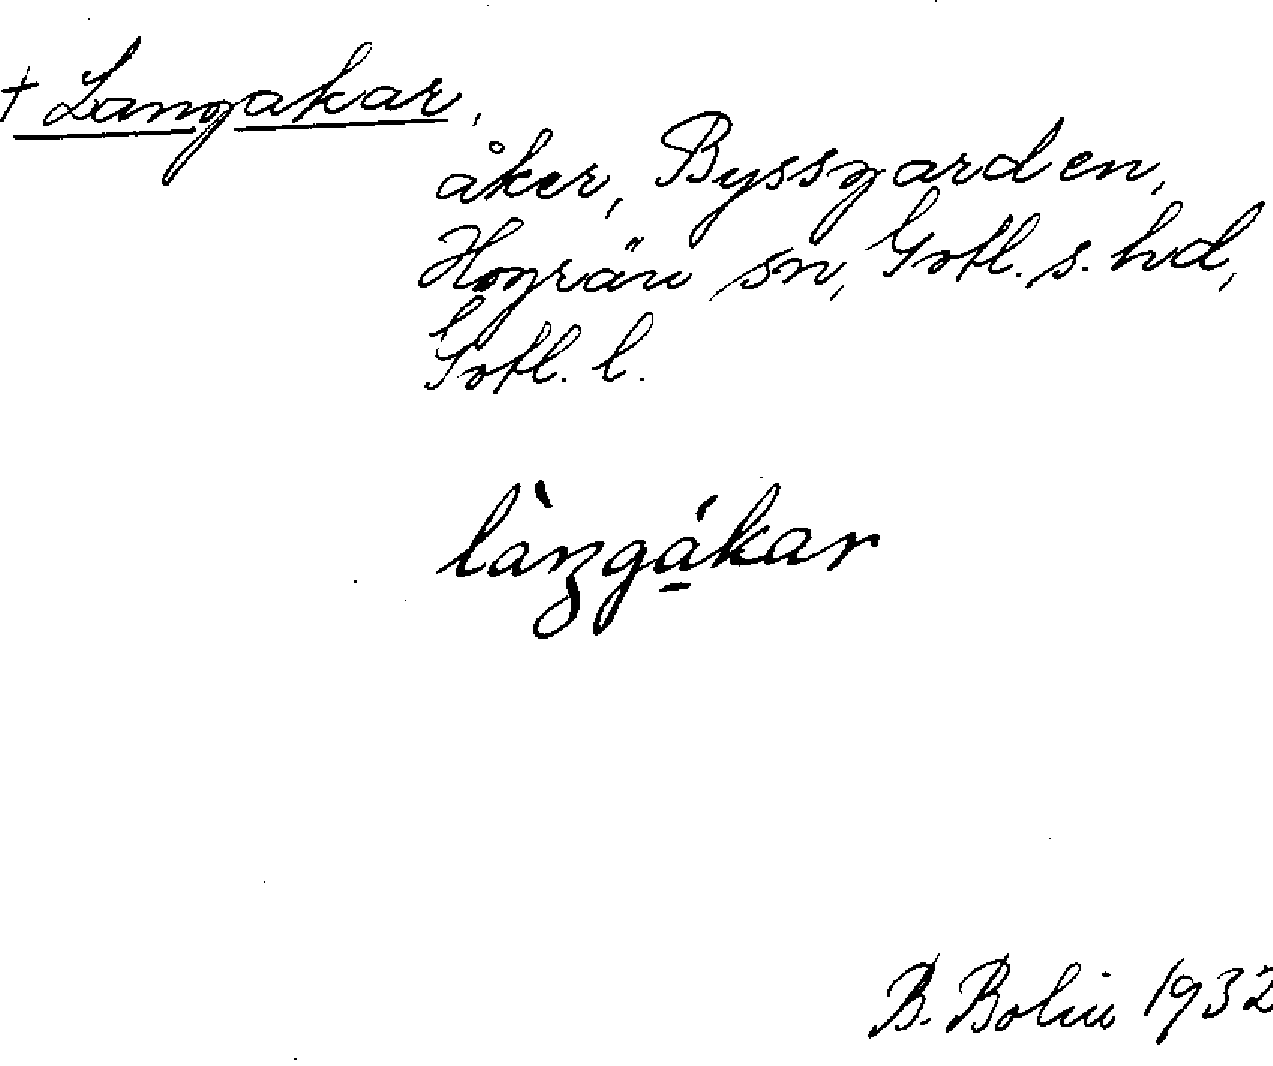 + Langakar,
åker, Byssgarden,
Hogrän sn, Gotl. s. hd,
Gotl. l.
làŋgákar
B. Bolin 1932